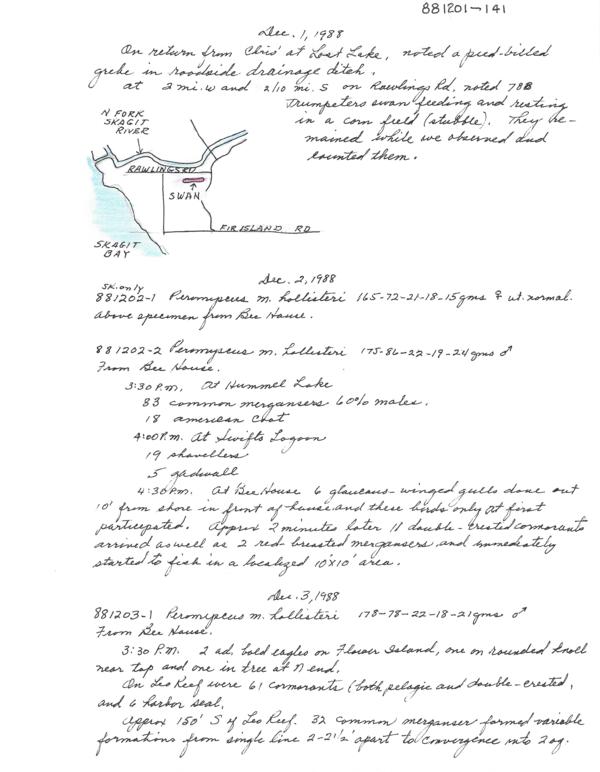 881201-141
Dec. 1, 1988
On return from Chris' at Lost Lake, noted a pied-billed
grebe in roadside drainage ditch.
at 2 mi. W and 2/10 mi. S on Rawlings Rd. noted 788
Trumpeters swan feeding and resting
in a corn field (stubble). They re-
mained while we observed and
counted them.
N FORK
SKAGIT
RIVER
RAWLINGS RD
SWAN
FIR ISLAND RD
SKAGIT
BAY
Dec. 2, 1988
SK. only
881202-1 Peromyscus m. hollisteri 165-72-21-18-15gms ♀ ut. normal.
above specimen from Bee House.
881202-2 Peromyscus m. hollisteri 175-86-22-19-24gms ♂
From Bee House.
3:30 P.M. At Hummel Lake
83 common mergansers 60% males.
18 american coot
4:00 P.M. At Swifts Lagoon
19 shovellers
5 gadwall
4:30 P.M. At Bee House 6 glaucous-winged gulls done out
10' from shore in front of house and these birds only at first
participated. Approx 2 minutes later 11 double-crested cormorants
arrived as well as 2 red-breasted mergansers and immediately
started to fish in a localized 10'x10' area.
Dec. 3, 1988
881203-1 Peromyscus m. hollisteri 178-78-22-18-21gms ♂
From Bee House.
3:30 P.M. 2 ad. bald eagles on Flower Island, one on rounded knoll
near top and one in tree at N end.
On Leo Reef were 61 cormorants (both pelagic and double-crested,
and 6 harbor seal.
Approx 150' S of Leo Reef. 32 common merganser formed variable
formations from single line 2-2½' apart to convergence into 2 ag.